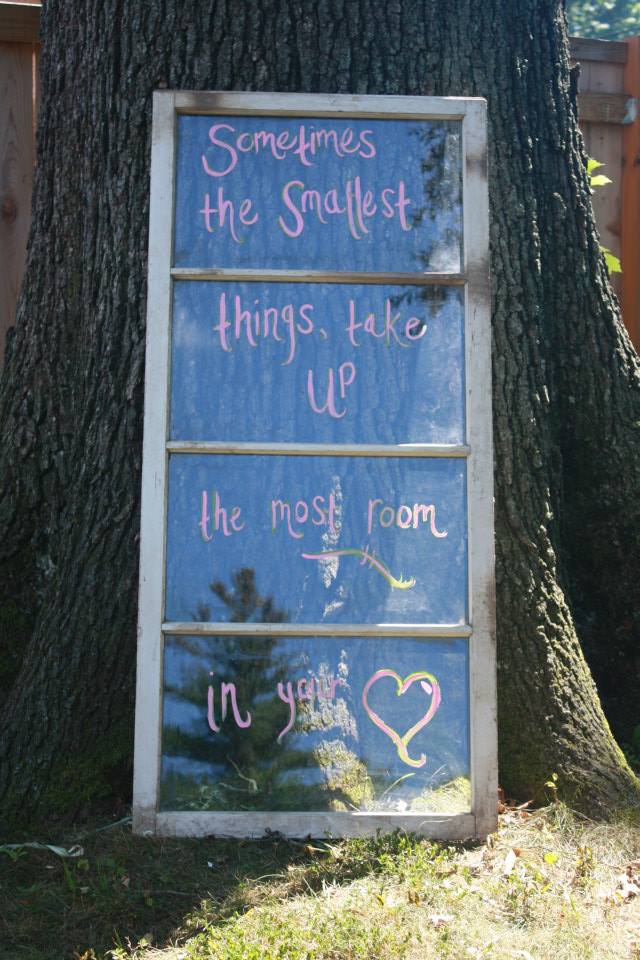 Sometimes
the Smallest
things, take
UP
the most room
in your